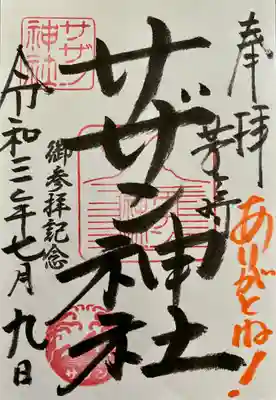 奉拝
茅ヶ崎
ありがとね!
サザン神社
サザン
神社
御参拝記念
令和三年七月九日